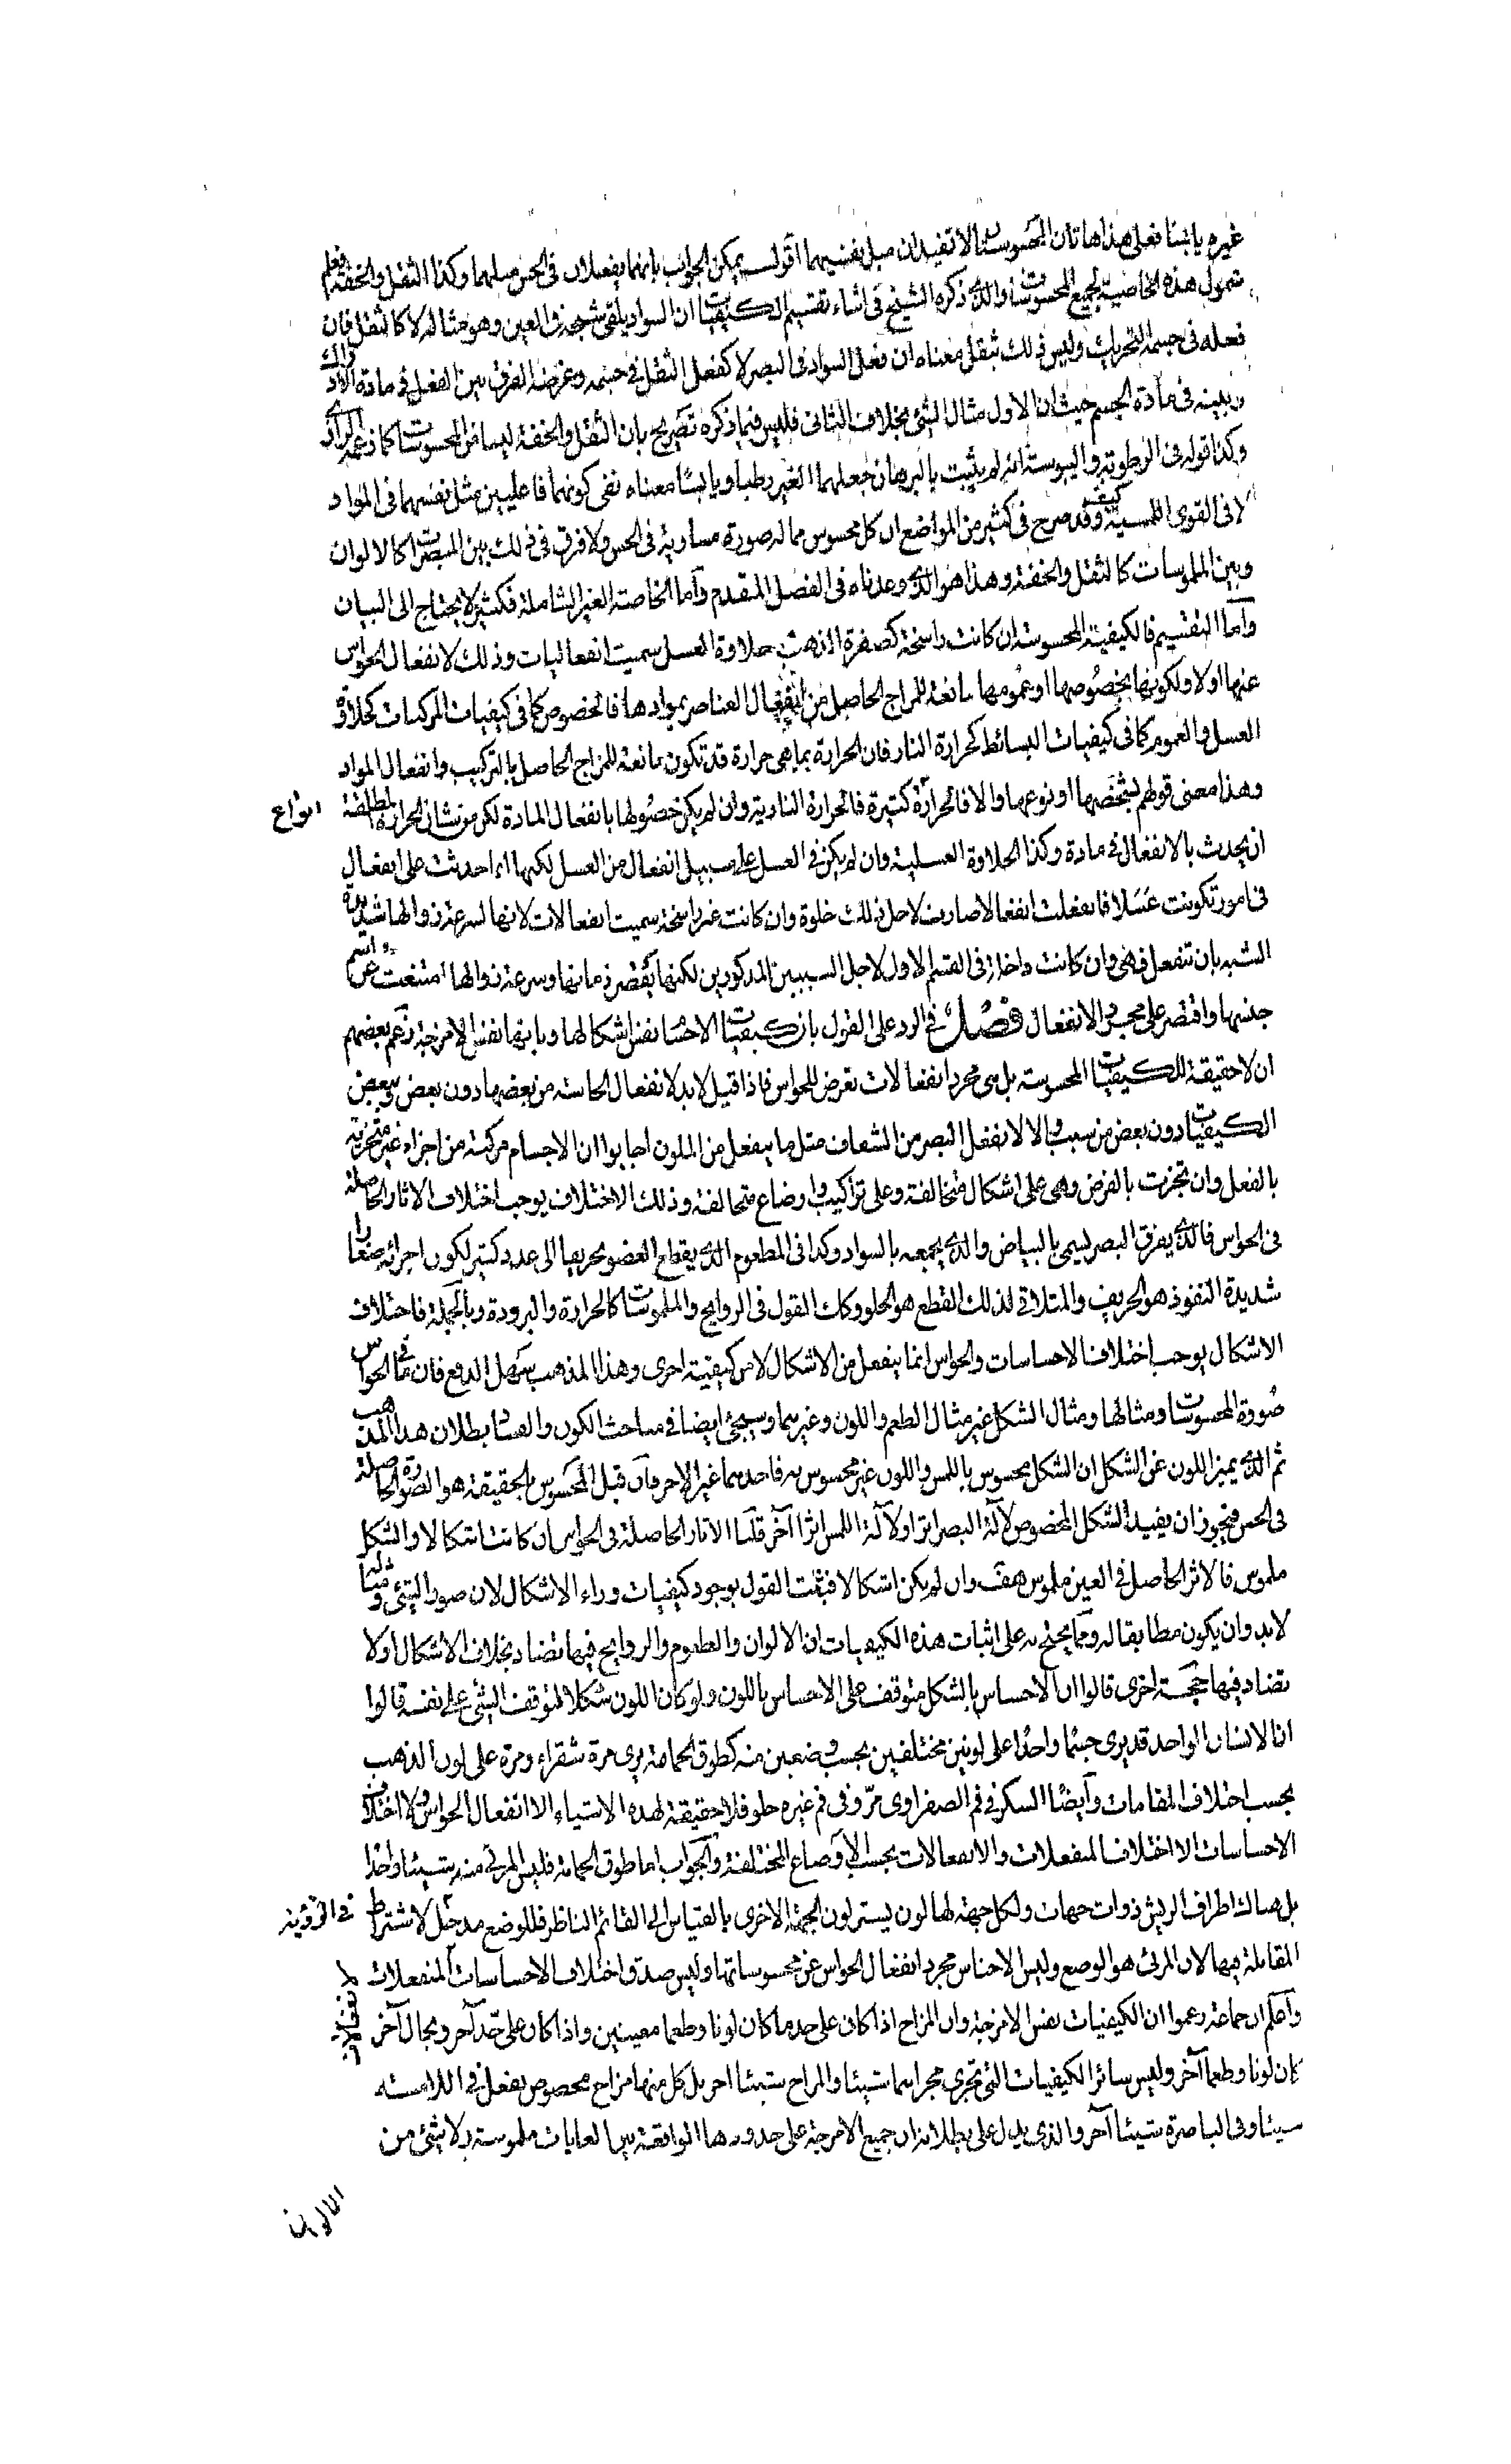 غيره يابسا فعلى هذا هاتان المحسوستان لا تفيدان مثل نفسيهما اقول يمكن الجواب بانهما يفعلان فى الحس مثلهما وكذا الثقل والخفة فعلم
شمول هذه الخاصية لجميع المحسوسات والذى ذكره الشيخ فى اثناء تقسيم الكيفيات ان السواد يلقى شبحه فى العين وهو مثاله لا كالثقل فان
فعله فى جسمه التحريك وليس ذلك بثقل معناه ان فعل السواد فى البصر لا كفعل الثقل فى جسمه وغرضه الفرق بين الفعل فى مادة الادراك
وبينه فى مادة الجسم حيث ان الاول مثال الشئ بخلاف الثانى فليس فيما ذكره تصريح بان الثقل والخفة ليسا من المحسوسات كما زعمه الرازى
وكذا قوله فى الرطوبة واليبوسة انه لم يثبت بالبرهان جعلهما الغير رطبا ويابسا معناه نفى كونهما فاعليين مثل نفسهما فى المواد
لا فى القوى اللمسية كيف وقد صرح فى كثير من المواضع ان كل محسوس مما له صورة مساوية فى الحس ولا فرق فى ذلك بين المبصرات كالالوان
وبين الملموسات كالثقل والخفة وهذا هو الذى وعدناه فى الفصل المتقدم واما الخاصة الغير الشاملة فكثير لا يحتاج الى البيان
واما التقسيم فالكيفية المحسوسة ان كانت راسخة كصفرة الذهب وحلاوة العسل سميت انفعاليات وذلك لانفعال الحواس
عنها اولا ولكونها بخصوصها او عمومها تابعة للمزاج الحاصل من انفعال العناصر بموادها فالخصوص كما فى كيفيات المركبات كحلاوة
العسل والعموم كما فى كيفيات البسائط كحرارة النار فان الحرارة بما هى حرارة قد تكون تابعة للمزاج الحاصل بالتركيب وانفعال المواد
وهذا معنى قولهم بشخصها او نوعها والا فالحرارة كثيرة انواع فالحرارة النارية وان لم يكن حصولها بانفعال المادة لكن من شان الحرارة المطلقة
ان يحدث بالانفعال فى مادة وكذا الحلاوة العسلية وان لم يكن فى العسل على سبيل انفعال من العسل لكنها انما حدثت على انفعال
فى امور تكونت عسلا فانفعلت انفعالا صارت لاجل ذلك حلوة وان كانت غير راسخة سميت انفعالات لانها لسرعة زوالها شديدة
الشبه بان تنفعل فهى وان كانت داخلة فى القسم الاول لاجل السببين المذكورين لكنها لقصر زمانها وسرعة زوالها امتنعت عن اسم
جنسها واقتصر على مجرد الانفعال فصل فى الرد على القول بان كيفيات الاجسام نفس اشكالها وبانها نفس الامزجة زعم بعضهم
ان لا حقيقة للكيفيات المحسوسة بل هى مجرد انفعالات تعرض للحواس فاذا قيل لا بد لانفعال الحاسة من بعضها دون بعض وببعض
الكيفيات دون بعض من سبب والا لانفعل البصر من الشفاف مثل ما ينفعل من الملون اجابوا ان الاجسام مركبة من اجزاء غير متجزية
بالفعل وان تجزت بالفرض وهى على اشكال متخالفة وعلى تراكيب واوضاع متخالفة وذلك الاختلاف يوجب اختلاف الاثار الحاصلة
فى الحواس فالذى يفرق البصر يسمى بالبياض والذى يجمعه بالسواد وكذا فى المطعوم الذى يقطع العضو تحريفا الى عدد كثير لكون اجزائه صغارا
شديدة النفوذ هو الحريف والمتلاقى لذلك القطع هو الحلو وكذلك القول فى الروايح والملموسات كالحرارة والبرودة وبالجملة فاختلاف
الاشكال يوجب اختلاف الاحساسات والحواس انما ينفعل من الاشكال لا من كيفية اخرى وهذا المذهب سهل الدفع فان ما فى الحواس
صورة المحسوسات ومثالها ومثال الشكل غير مثال الطعم واللون وغيرهما وسيجئ ايضا فى مباحث الكون والفساد بطلان هذا المذهب
ثم الذى يميز اللون عن الشكل ان الشكل محسوس باللمس واللون غير محسوس به فاحدهما غير الاخر فان قيل المحسوس بالحقيقة هو الصورة الحاصلة
فى الحس فيجوز ان يفيد الشكل المخصوص لآلة البصر اثرا ولآلة اللمس اثرا آخر قلنا الاثار الحاصلة فى الحواس ان كانت اشكالا والشكل
ملموس فالاثر الحاصل فى العين ملموس هف وان لم يكن اشكالا فثبت القول بوجود كيفيات وراء الاشكال لان صورة الشئ ومثاله
لا بد وان يكون مطابقا له ومما يحتج به على اثبات هذه الكيفيات ان الالوان والطعوم والروايح فيها تضاد بخلاف الاشكال اذ لا
تضاد فيها حجة اخرى قالوا ان الاحساس بالشكل متوقف على الاحساس باللون ولو كان اللون شكلا لتوقف الشئ على نفسه قالوا
ان الانسان الواحد قد يرى جسما واحدا على لونين مختلفين بحسب وضعين منه كطوق الحمامة يرى مرة شقراء ومرة على لون الذهب
بحسب اختلاف المقامات وايضا السكر فى فم الصفراوى مر وفى فم غيره حلو فلا حقيقة لهذه الاشياء الا انفعال الحواس ولا اختلاف
الاحساسات الا اختلاف المنفعلات والانفعالات بحسب الاوضاع المختلفة والجواب اما طوق الحمامة فليس المرئى منه شيئا واحدا
بل هناك اطراف الريش ذوات جهات ولكل جهة لها لون يستر لون الجهة الاخرى بالقياس الى القائم الناظر فللوضع مدخل فى الرؤية لاشتراط
المقابلة فيها لا ان المرئى هو الوضع وليس الاحساس مجرد انفعال الحواس عن محسوساتها وليس صدق اختلاف الاحساسات المنفعلات
واعلم ان جماعة زعموا ان الكيفيات نفس الامزجة وان المزاج اذا كان على حد ما كان لونا وطعما معينين واذا كان على حد آخر وبحال آخر
كان لونا وطعما آخر وليس سائر الكيفيات التى تجرى مجراهما شيئا والمزاج شيئا آخر بل كل منها مزاج مخصوص يفعل فى اللامسة
شيئا وفى الباصرة شيئا آخر والذى يدل على بطلانه ان جميع الامزجة على حدودها الواقعة بين الغايات ملموسة ولا شئ من
الالوان